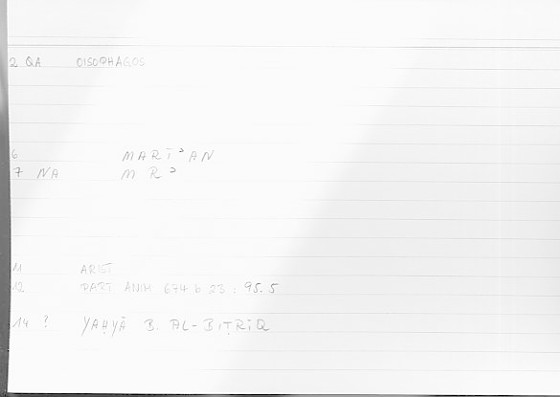 2 QA OISOPHAGOS
6 MARĪʾAN
7 NA MRʾ
11 ARIST
12 PART ANIM 674 b 23 : 95.5
14 ? YAḤYĀ B. AL-BIṬRĪQ